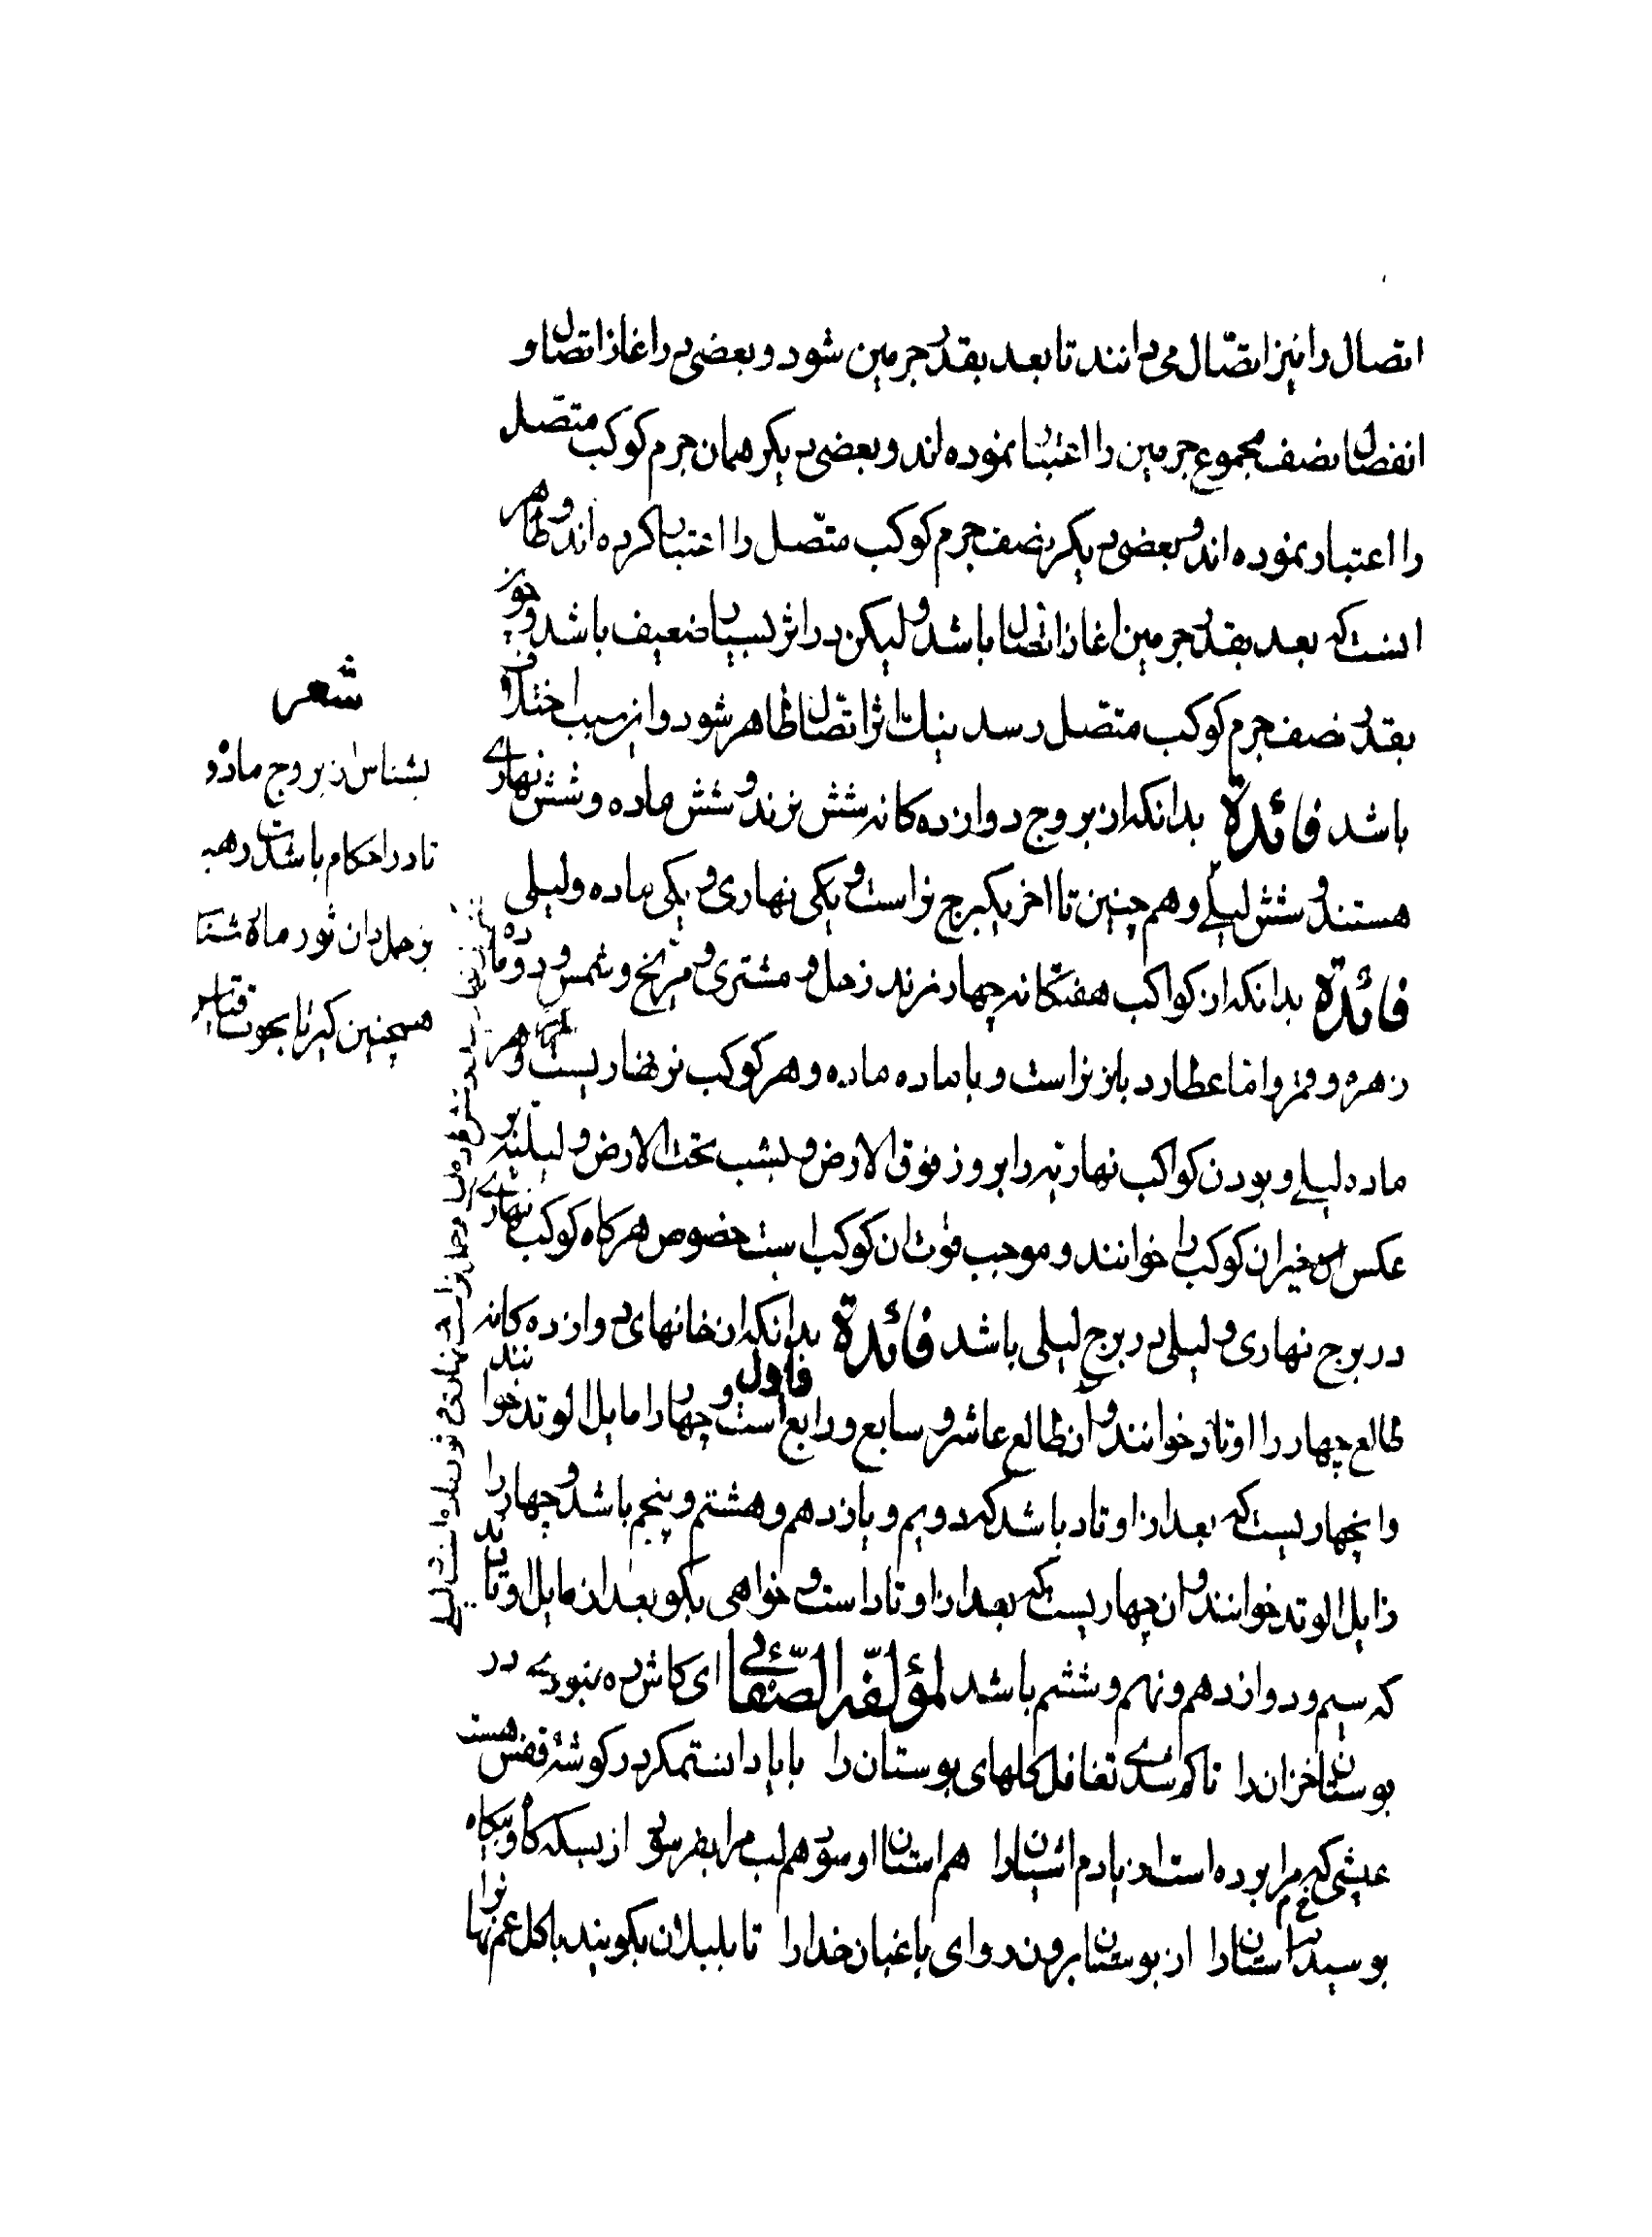 اتصال را نیز اتصّال می دانند تا بعد بقدر جرمین شود و بعضی در اغاز اتصال و
انفصال نصف مجموع جرمین را اعتبار نموده اند و بعضی دیگر همان جرم کوکب متصّل
را اعتبار نموده اند و بعضی دیگر نصف جرم کوکب متصّل را اعتبار کرده اند و ظاهر
انست که بعد بقدر جرمین اغاز اتصال باشد و لیکن در اثر بسیار ضعیف باشد و چون
بقدر نصف جرم کوکب متصّل رسد نیک اثر اتصّال ظاهر شود و این سبب اختلاف
باشد فائدة بدانکه از بروج دوازده کانه شش نرند و شش ماده و شش نهاری
هستند و شش لیلی و هم چنین تا اخر یکبرج نر است و یکی نهاری و یکی ماده و لیلی
فائدة بدانکه از کواکب هفتکانه چهار نرند زحل و مشتری و مریخ و شمس و دو ماده
زهره و قمر و امّا عطارد با نر نر است و با ماده ماده و هر کوکب نر نهاریست و هر
ماده لیلی و بودن کواکب نهاریّه را بروز فوق الارض و بشب تحت الارض و لیلیّه بر
عکس این خیر ان کوکب را خوانند و موجب قوّت ان کوکب است خصوص هر کاه کوکب نهاری
در برج نهاری و لیلی در برج لیلی باشد فائدة بدانکه از خانهای دوازده کانه
طالع چهار را اوتاد خوانند و ان طالع عاشر و سابع و رابع است و چهار را مایل الوتد خوانند
و انچهاریست که بعد از اوتاد باشد که دویم و یازدهم و هشتم و پنجم باشد و چهار را
زایل الوتد خوانند و ان چهاریست که بعد از اوتاد است و خواهی بکو بعد از مایل اوتاد
که سیم و دوازدهم و نهم و ششم باشد لمؤلفّه الصّفائی ای کاش ره نبودی در
بوستان خزان را تا کم شدی تغافل کلهای بوستان را با یاد دانستمکر در کوشۀ قفس هست
عیشی که برده است از یادم اشیان را هم استان او سود هم لب مرا بفرسود از بسکه کاه و بیکاه
بوسیدم استان را از بوستان برون رو ای باغبان خدا را تا بلبلان بکویند با کل غم نهان را
شعر
بشناس ز بروج ماده و
تا در احکام باشدت رهبر
نر حمل دان ثور ماده شناس
همچنین کیر تا بحوت قیاس